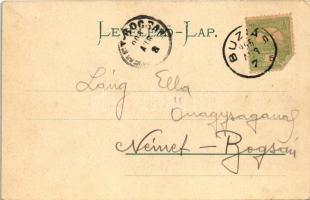 LEVELEZŐ-LAP.
BUZIÁS
Láng Ella
Őnagyságának
Német-Bogsán